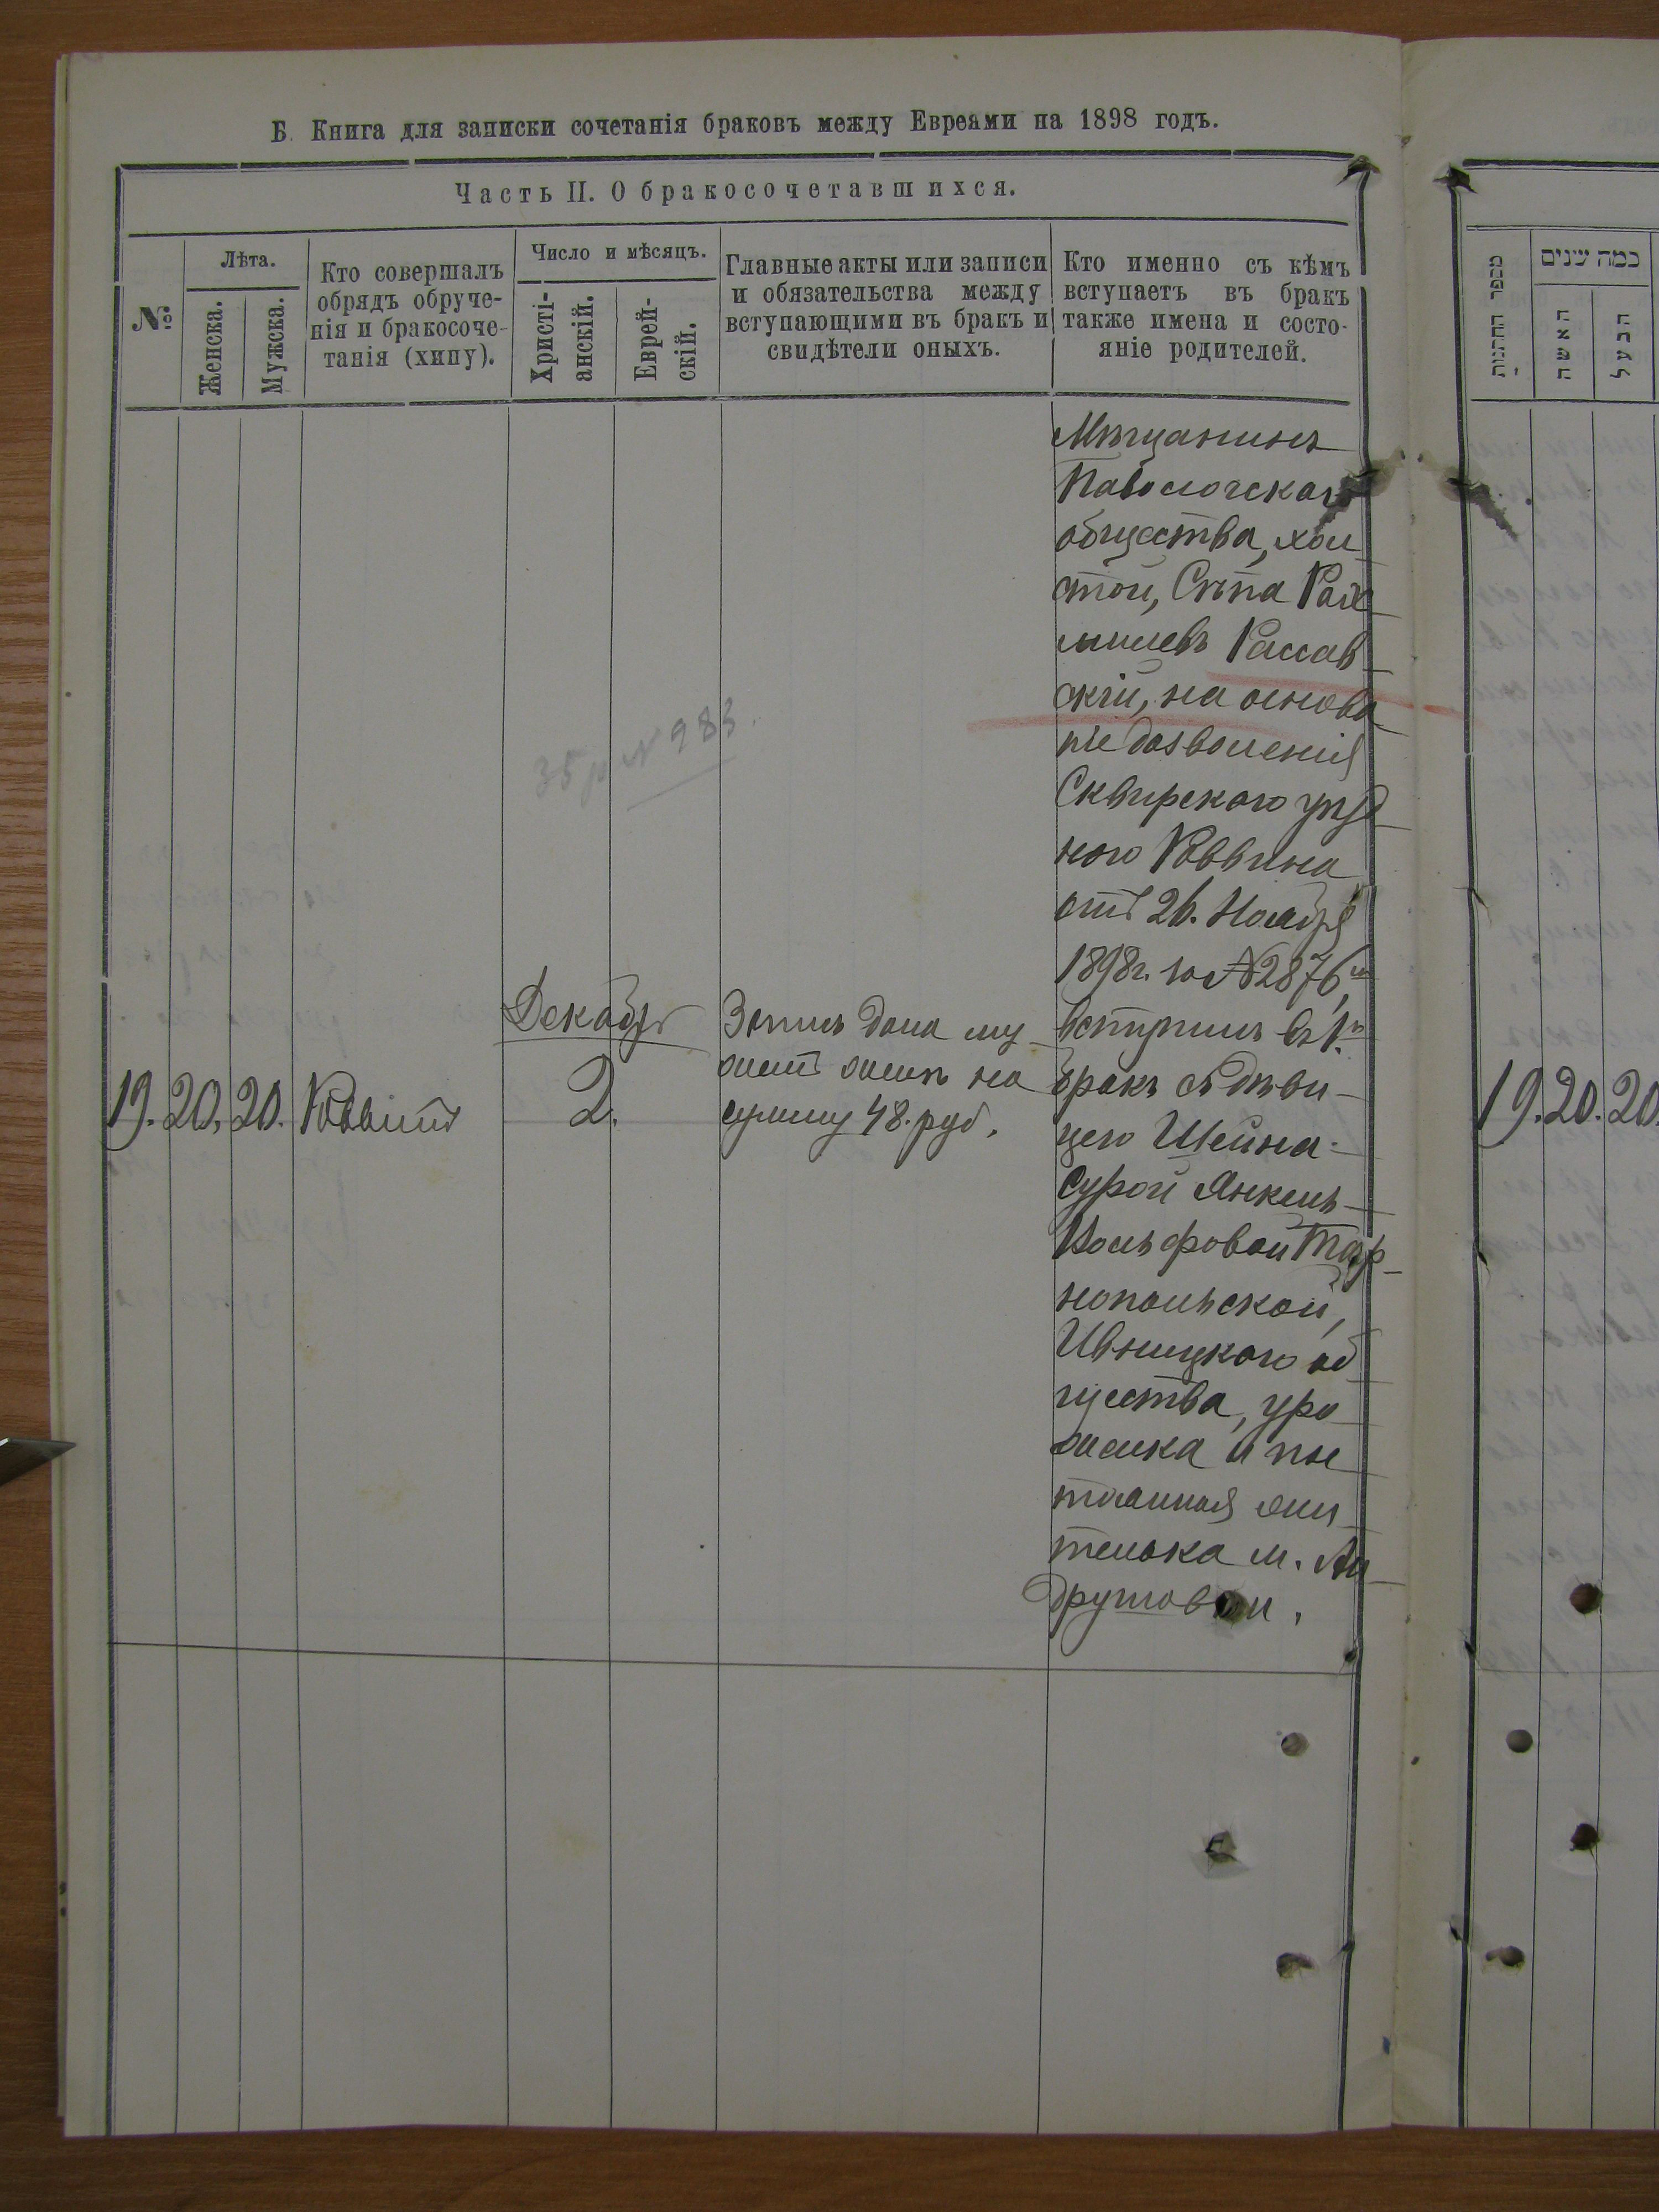 Б. Книга для записки сочетанія браковъ между Евреями на 1898 годъ.
Часть II. О бракосочетавшихся.
№
Лѣта.
Женска.
Мужска.
Кто совершалъ
обрядъ обруче-
нія и бракосоче-
танія (хипу).
Число и мѣсяцъ.
Христі-
анскій.
Еврей-
скій.
Главные акты или записи
и обязательства между
вступающими въ бракъ и
свидѣтели оныхъ.
Кто именно съ кѣмъ
вступаетъ въ бракъ
также имена и состо-
яніе родителей.
19.
20.
20.
Раввинъ
Декабр
2.
Запись дана му
жемъ женѣ на
сумму 48. руб.
35 р № 983.
Мѣщанинъ
Паволочскаго
общества, холо
стой,
Рассав
скій, на основа
ніе дозволенія
Сквирскаго уѣзд
наго Раввина
отъ 26. Ноября
1898г. за №2876,
вступилъ въ 1й
бракъ съ дѣви-
цею Шейна-
Сурой Янкель-
Вольфовой Тар-
нопольской,
Ивницкаго об
щества, уро
женка и
жи
телька м. Ан
друшовки.
מספר החתנות
כמה שנים
האשה
הבעל
19.
20.
20.